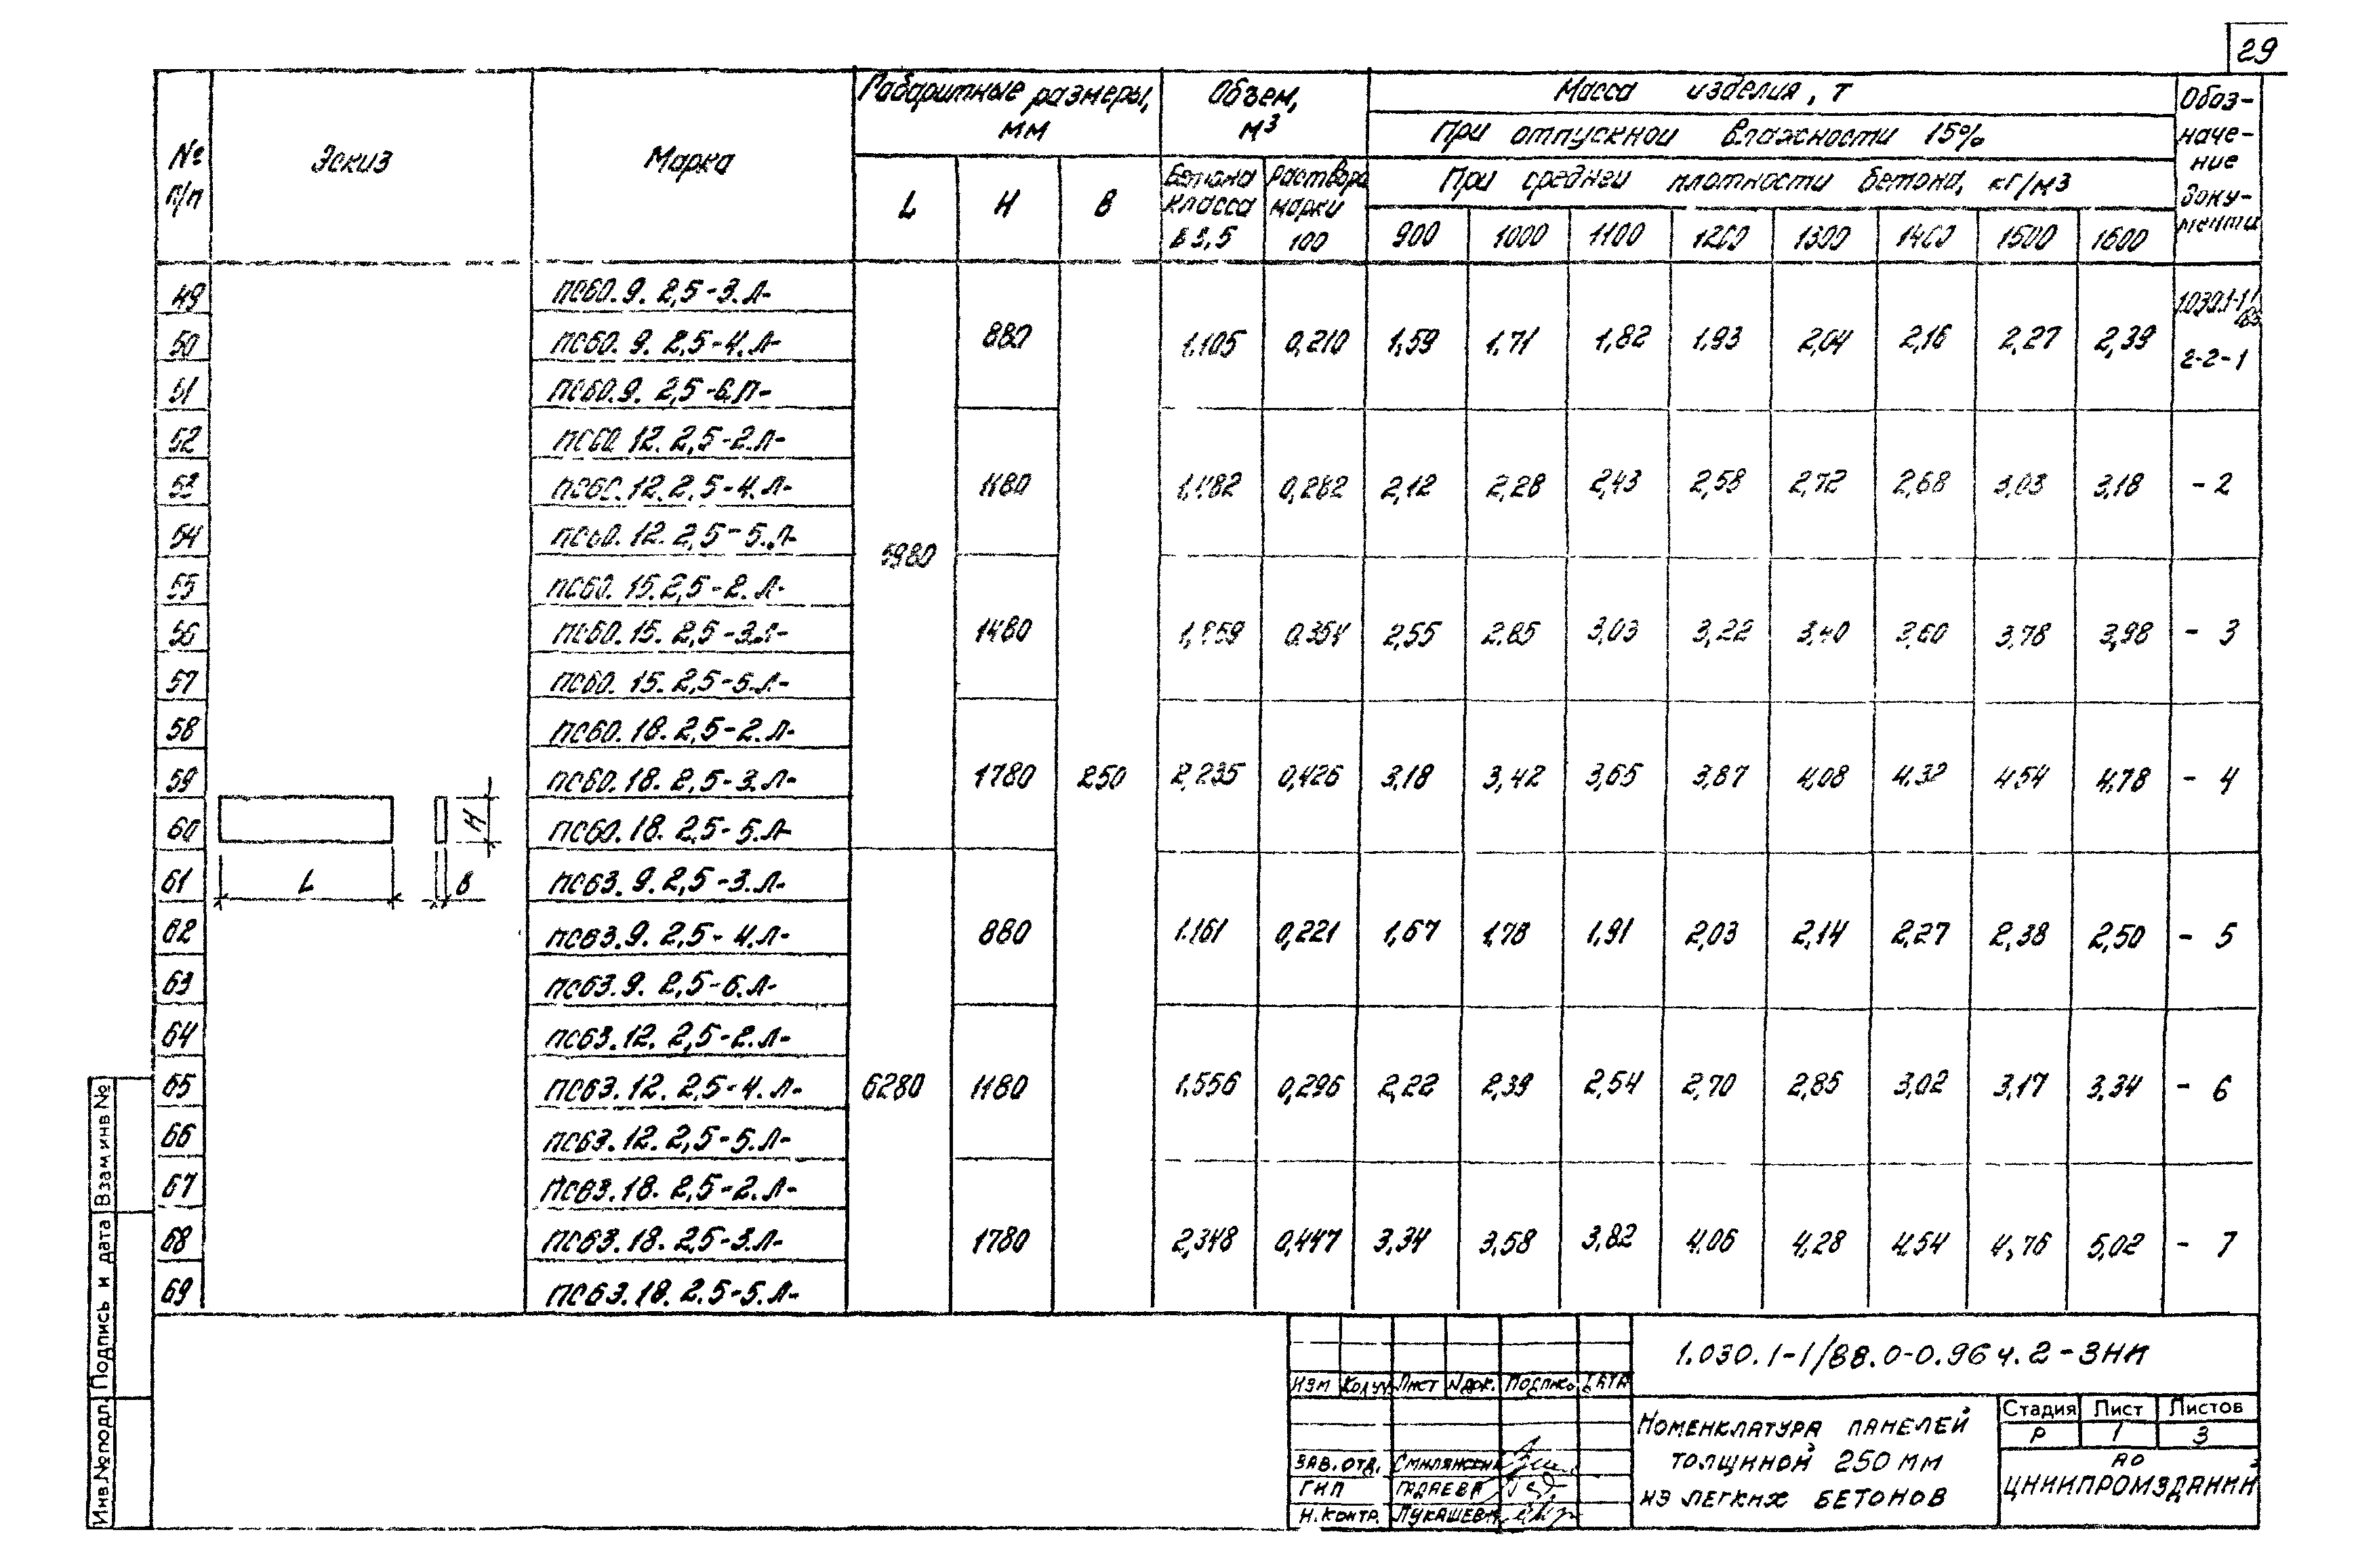 29
№ п/п Эскиз Марка Габаритные размеры, мм Объем, м3 Масса изделия, т Обоз-наче-ние доку-мента
При отпускной влажности 15%
L H B Бетона класса В3,5 Раствора марки 100 При средней плотности бетона, кг/м3
900 1000 1100 1200 1300 1400 1500 1600
49 ПС60.9.2,5-3.Л-
50 ПС60.9.2,5-4.Л- 880 1,105 0,210 1,59 1,71 1,82 1,93 2,04 2,16 2,27 2,39 2-2-1
51 ПС60.9.2,5-6.Л-
52 ПС60.12.2,5-2.Л-
53 ПС60.12.2,5-4.Л- 1180 0,282 2,12 2,28 2,43 2,58 2,72 2,68 3,03 3,18 -2
54 ПС60.12.2,5-5.Л-
5980
55 ПС60.15.2,5-2.Л-
56 ПС60.15.2,5-3.Л- 1480 0,354 2,55 2,85 3,03 3,22 3,40 3,60 3,78 3,98 - 3
57 ПС60.15.2,5-5.Л-
58 ПС60.18.2,5-2.Л-
59 ПС60.18.2,5-3.Л- 1780 250 2,235 0,426 3,18 3,42 3,65 3,87 4,08 4,32 4,54 4,78 - 4
60 H ПС60.18.2,5-5.Л-
61 L B ПС63.9.2,5-3.Л-
62 ПС63.9.2,5-4.Л- 880 1,161 0,221 1,67 1,78 1,91 2,03 2,14 2,27 2,38 2,50 - 5
63 ПС63.9.2,5-6.Л-
64 ПС63.12.2,5-2.Л-
65 ПС63.12.2,5-4.Л- 6280 1180 1,556 0,296 2,22 2,39 2,54 2,70 2,85 3,02 3,17 3,34 - 6
66 ПС63.12.2,5-5.Л-
67 ПС63.18.2,5-2.Л-
68 ПС63.18.2,5-3.Л- 1780 2,348 0,447 3,34 3,58 3,82 4,06 4,28 4,54 4,76 5,02 - 7
69 ПС63.18.2.5-5.Л-
Инв.№ подл. Подпись и дата Взам инв №
1.030.1-1/88.0-0.96 ч.2-3НИ
Изм Кол.уч Лист №док. Подпись Дата
Номенклатура панелей толщиной 250 мм из легких бетонов
Стадия Лист Листов
Р 1 3
Зав.отд. Смилянский
ГИП Гадаева
Н.контр. Лукашевич
АО
ЦНИИПРОМЗДАНИЙ